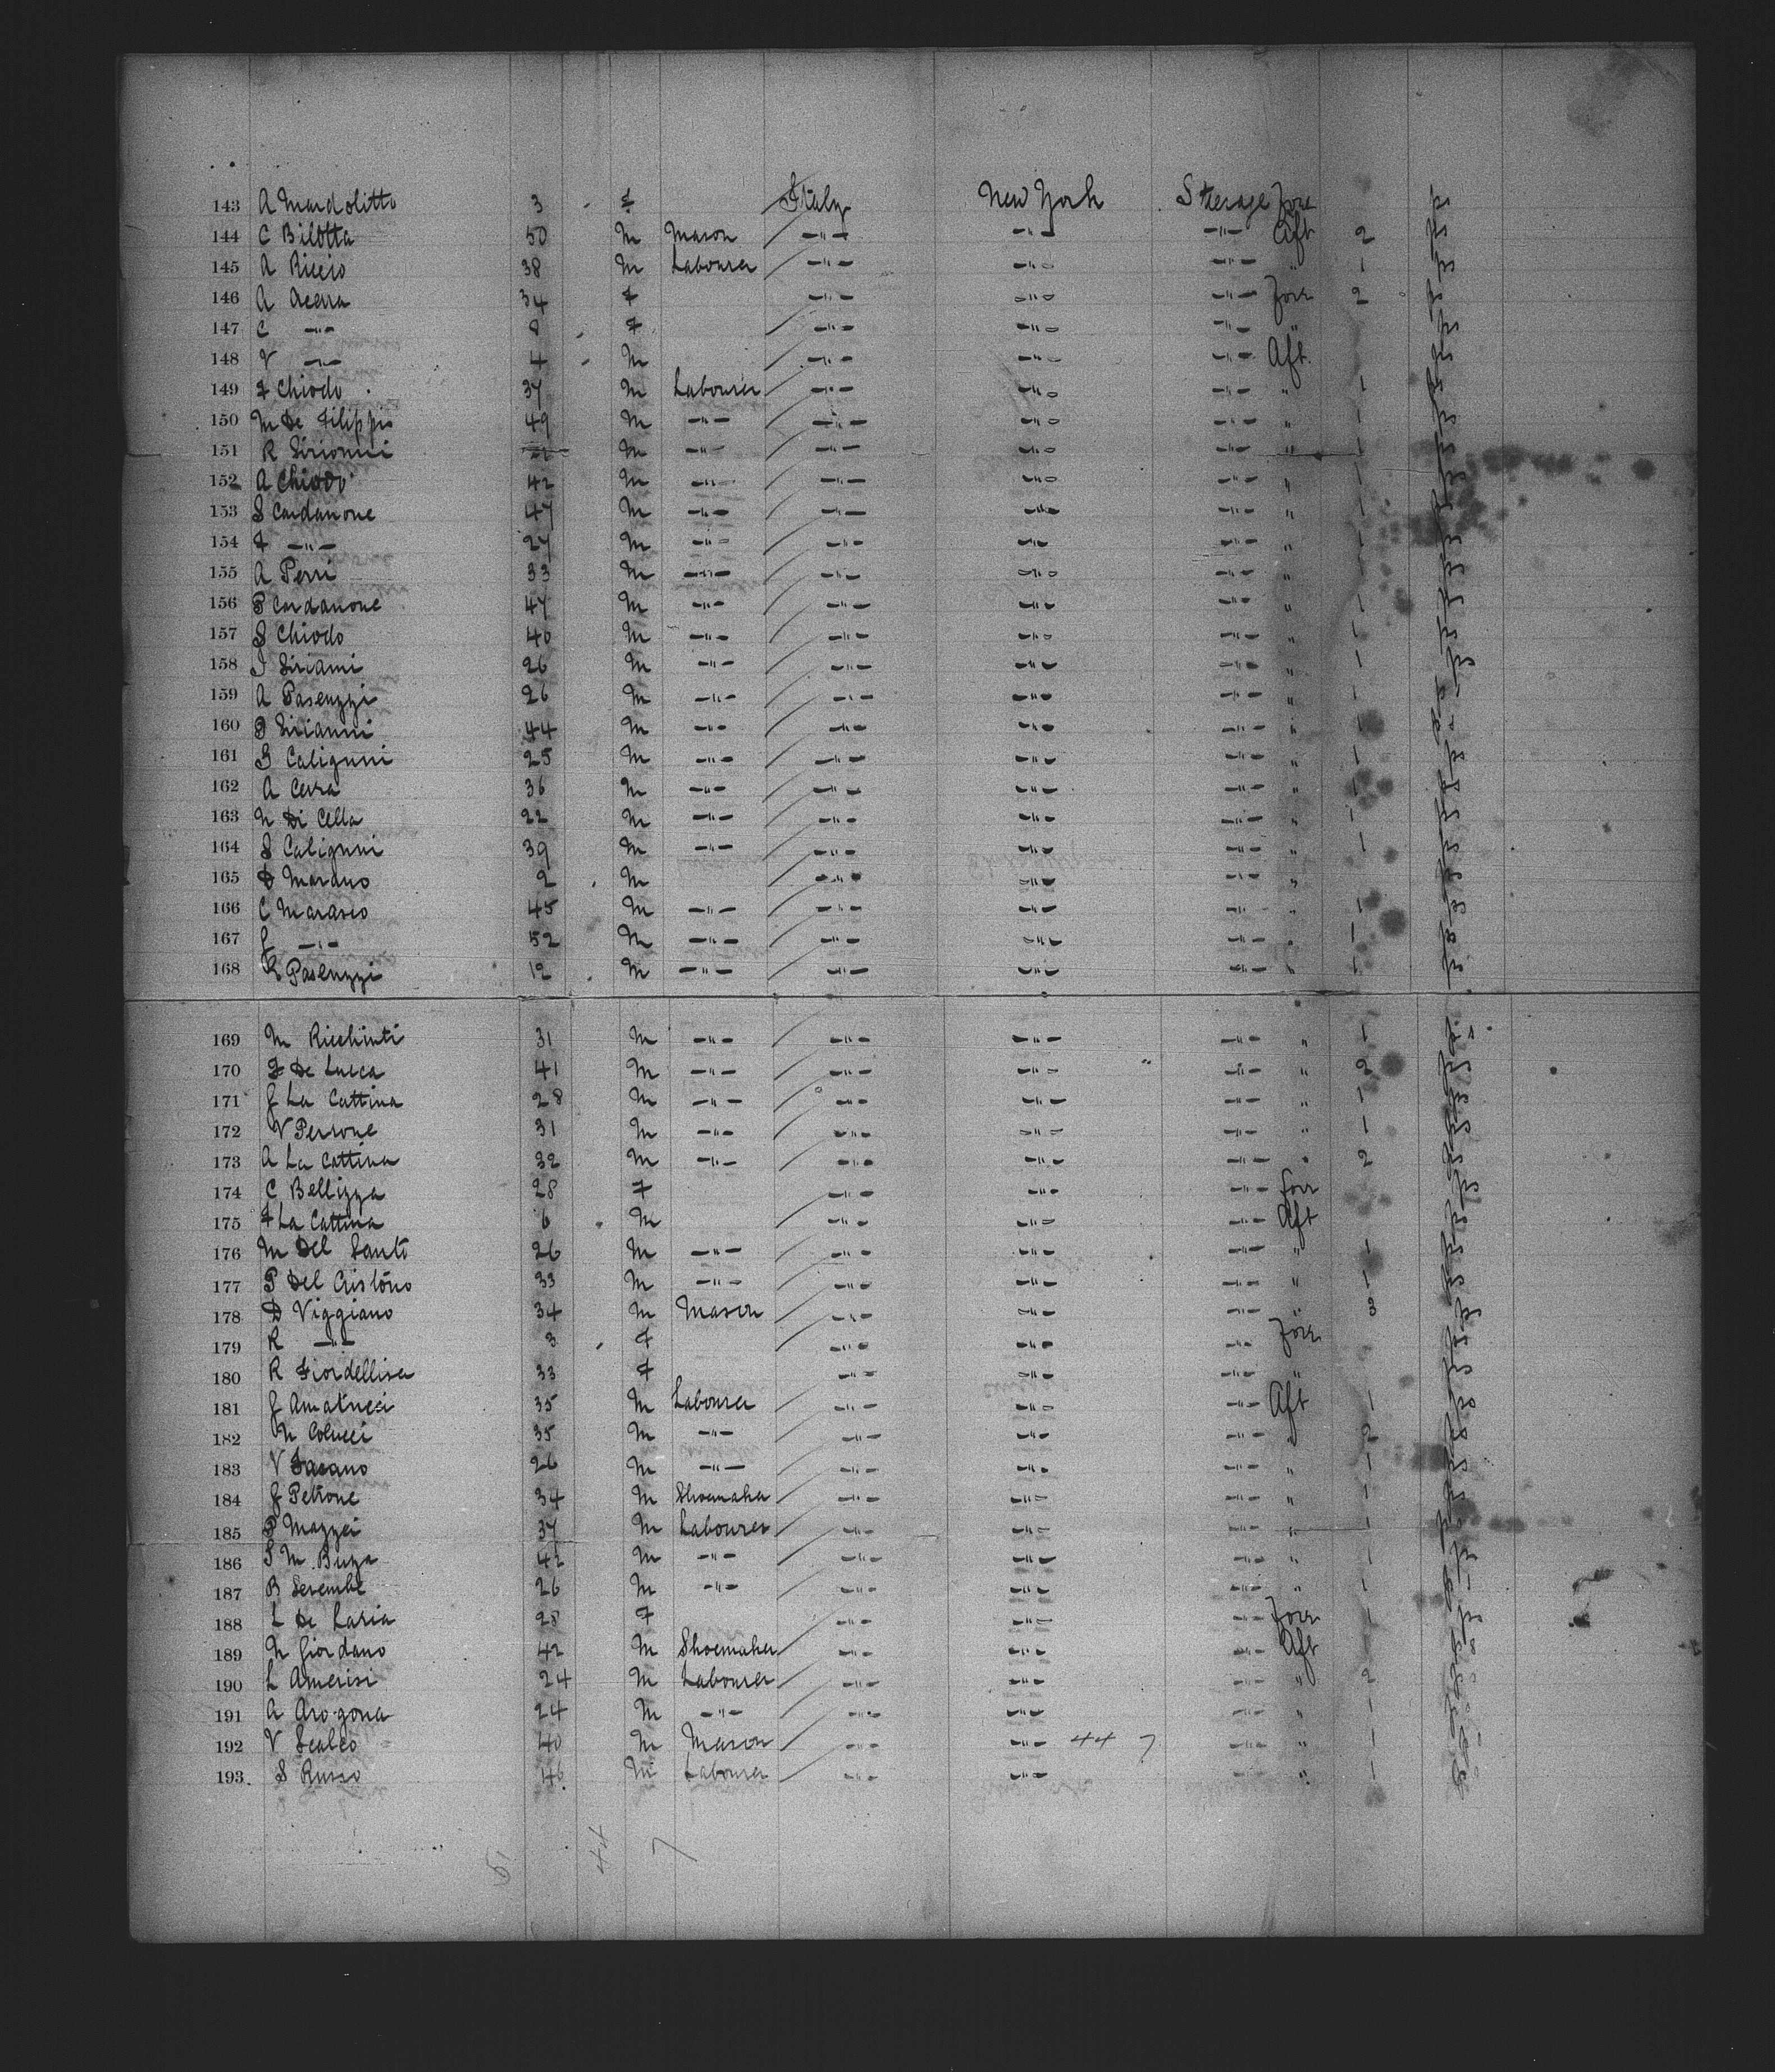 143 A Mardolitto 3 f Italy New York Steerage Forr ps
144 C Bilotta 50 m Mason -"- -"- -"- Aft 2 ps
145 A Riccio 38 m Labourer -"- -"- -"- " 1 ps
146 A Acerra 34 f -"- -"- -"- Forr 2 ps
147 C -"- 8 f -"- -"- -"- " ps
148 V -"- 4 m -"- -"- -"- Aft ps
149 F Chiodo 37 m Labourer -"- -"- -"- " 1 ps
150 M De Filippis 49 m -"- -"- -"- -"- " 1 ps
151 R Sirionni m -"- -"- -"- -"- " 1 ps
152 A Chiodo 42 m -"- -"- -"- -"- " 1 ps
153 S Cardamone 47 m -"- -"- -"- -"- " 1 ps
154 F -"- 27 m -"- -"- -"- -"- " 1 ps
155 A Perri 33 m -"- -"- -"- -"- " 1 ps
156 P Cardamone 47 m -"- -"- -"- -"- " 1 ps
157 S Chiodo 40 m -"- -"- -"- -"- " 1 ps
158 I Siriami 26 m -"- -"- -"- -"- " 1 ps
159 A Pascuzzi 26 m -"- -"- -"- -"- " 1 ps
160 P Sirianni 44 m -"- -"- -"- -"- " 1 ps
161 B Caligiuri 25 m -"- -"- -"- -"- " 1 ps
162 A Cerra 36 m -"- -"- -"- -"- " 1 ps
163 N Di Cella 22 m -"- -"- -"- -"- " 1 ps
164 S Caligiuri 39 m -"- -"- -"- -"- " 1 ps
165 D Marano 2 m -"- -"- -"- " ps
166 C Marasco 45 m -"- -"- -"- -"- " 1 ps
167 G -"- 52 m -"- -"- -"- -"- " 1 ps
168 R Pascuzzi 12 m -"- -"- -"- -"- " 1 ps
169 M Ricchinti 31 m -"- -"- -"- -"- " 1 ps
170 F De Lucca 41 m -"- -"- -"- -"- " 2 ps
171 G La Cattina 28 m -"- -"- -"- -"- " 1 ps
172 V Perrone 31 m -"- -"- -"- -"- " 1 ps
173 A La Cattina 32 m -"- -"- -"- -"- " 2 ps
174 C Bellizza 28 f -"- -"- -"- Forr ps
175 F La Cattina 6 m -"- -"- -"- Aft ps
176 M Del Santo 26 m -"- -"- -"- -"- " 1 ps
177 P Del Cristóno 33 m -"- -"- -"- -"- " 1 ps
178 D Viggiano 34 m Mason -"- -"- -"- " 3 ps
179 R -"- 3 f -"- -"- -"- Forr ps
180 R Fiordellisa 33 f -"- -"- -"- " ps
181 G Amatucci 35 m Labourer -"- -"- -"- Aft 1 ps
182 N Colucci 35 m -"- -"- -"- -"- " 2 ps
183 V Fasano 26 m -"- -"- -"- -"- " 1 ps
184 G Petrone 34 m Shoemaker -"- -"- -"- " 1 ps
185 P Mazzei 37 m Labourer -"- -"- -"- " 1 ps
186 S M Buza 42 m -"- -"- -"- -"- " 1 ps
187 B Serembe 26 m -"- -"- -"- -"- " 1 ps
188 L De Laria 28 f -"- -"- -"- Forr 1 ps
189 N Giordano 42 m Shoemaker -"- -"- -"- Aft ps
190 L Amerisi 24 m Labourer -"- -"- -"- " 2 ps
191 A Aragona 24 m -"- -"- -"- -"- " 1 ps
192 V Scalco 40 m Mason -"- -"- 44 7 -"- " 1 ps
193 S Russo 46 m Labourer -"- -"- -"- " 1 ps
19 44 7